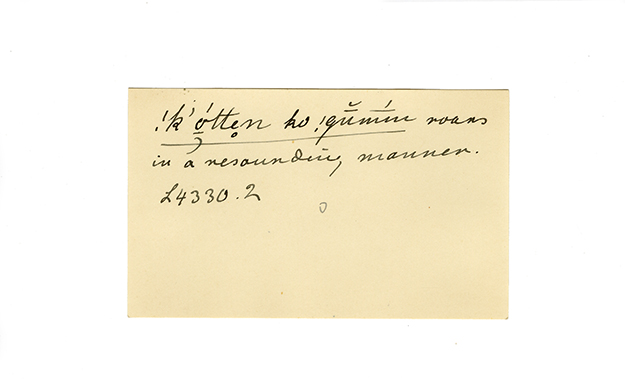 !k̓ó̱tten̥ ho !gŭmḿĭn roars
in a resounding manner.
L4330.2